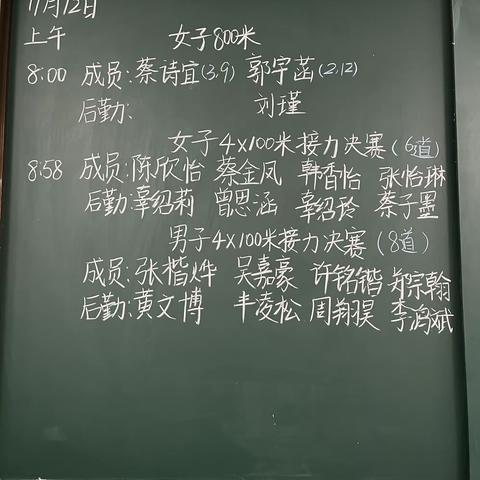 11月12日
上午 女子800米
8:00 成员:蔡诗宜(3,9) 郭宇菡(2,12)
后勤: 刘瑾
女子4×100米接力决赛(6道)
8:58 成员:陈欣怡 蔡金凤 韩香怡 张怡琳
后勤:辜绍莉 曾思涵 辜绍玲 蔡子墨
男子4×100米接力决赛(8道)
成员:张楷烨 吴嘉豪 许铭锴 郑宗翰
后勤:黄文博 丰凌松 周翔昊 李鸿斌